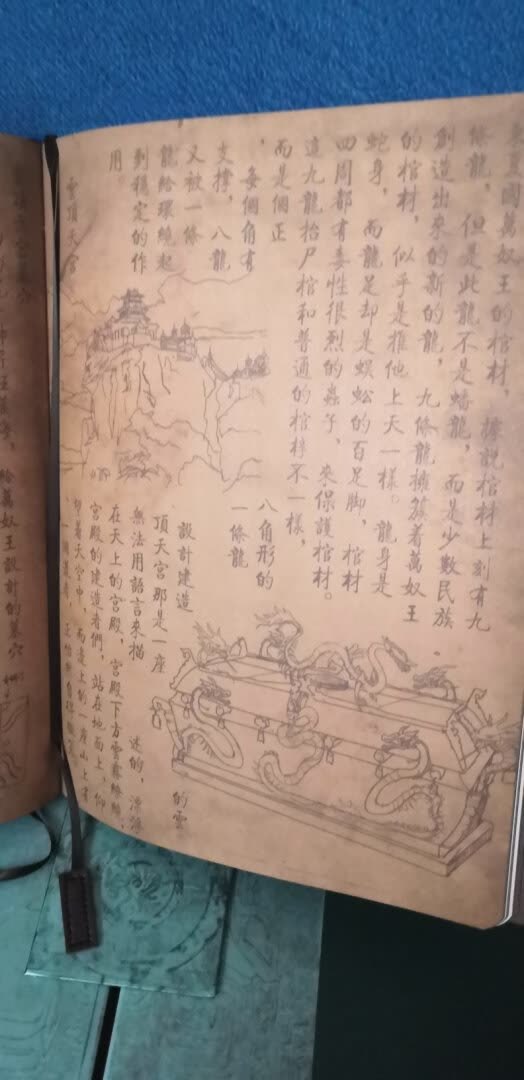 東夏國萬奴王的棺材，據說棺材上刻有九
條龍，但是此龍不是蟠龍，而是少數民族
創造出來的新的龍，九條龍擁簇着萬奴王
的棺材，似乎是推他上天一樣。龍身是
蛇身，而龍足却是蜈蚣的百足脚，棺材
四周都有毒性很烈的蟲子，來保護棺材。
這九龍抬尸棺和普通的棺椁不一樣，
而是個正八角形的
，每個角有一條龍
支撐，八龍
又被一條
龍給環繞起
到穩定的作
用。
雲頂天宫
的雲
謎的，
設計建造
頂天宮那是一座
無法用語言來描
在天上的宮殿，宮殿下方雲霧繚繞，
宮殿的建造者們，站在地面上，仰
望着天空中，而邊上的一座山上有
給萬奴王設計的墓穴